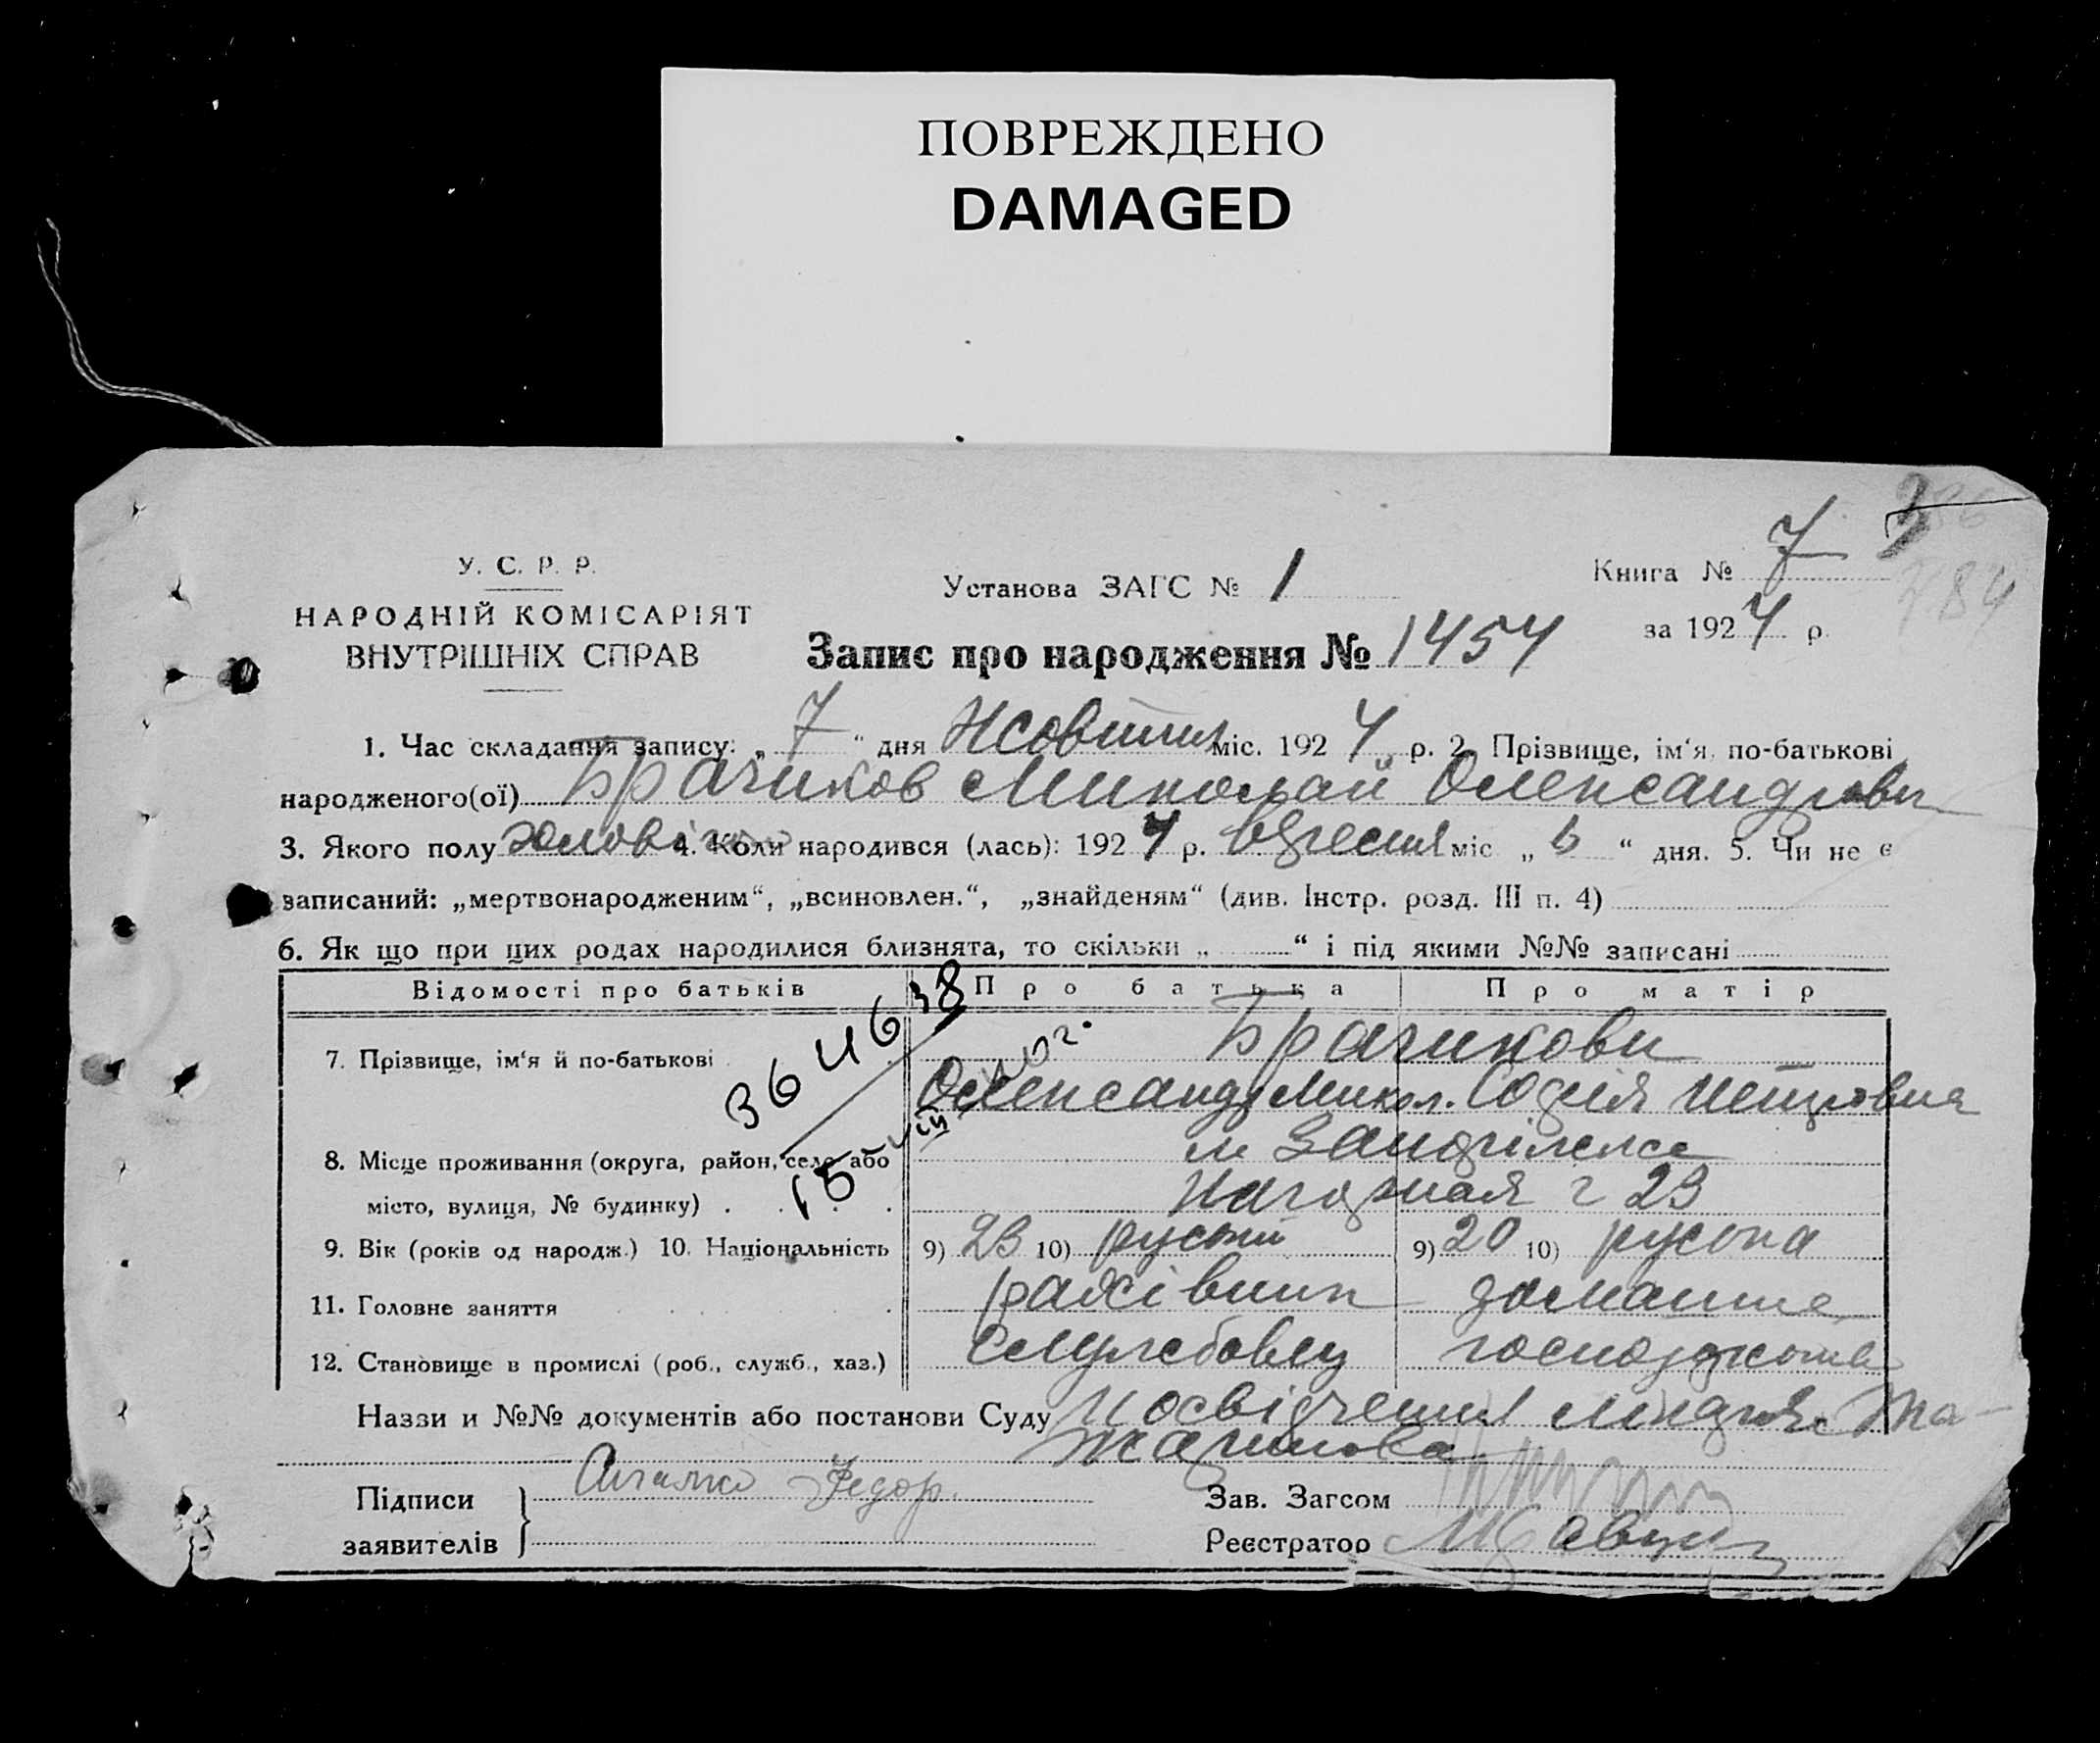 ПОВРЕЖДЕНО
DAMAGED
У. С. Р. Р.
НАРОДНІЙ КОМІСАРІЯТ
ВНУТРІШНІХ СПРАВ
Установа ЗАГС № 1
Книга № 7
за 1924 р.
Запис про народження № 1454
1. Час складання запису: „ 7 “ дня Жовтня міс. 1924 р. 2. Прізвище, ім‘я, по-батькові
народженого(ої) Брачиков Миколай Олександрович
3. Якого полу чоловічого 4. Коли народився (лась): 1924 р. Вересня міс. „ “ дня. 5. Чи не є
записаний: „мертвонародженим“, „всиновлен.“, „знайденям“ (див. Інстр. розд. III п. 4)
6. Як що при цих родах народилися близнята, то скільки „ “ і під якими №№ записані
Відомості про батьків
Про батька
Про матір
7. Прізвище, ім‘я й по-батькові
Брачикови
Олександр Микол. Софія Петровна
8. Місце проживання (округа, район, село або
місто, вулиця, № будинку)
м Запоріжжє
Нагорная 23
9. Вік (років од народж.) 10. Національність
9) 23 10) руский
9) 20 10) руська
11. Головне заняття
рахівник
домашнє
12. Становище в промислі (роб., служб., хаз.)
Службовец
господарство
364638
15
Назви и №№ документів або постанови Суду Посвідчення
Підписи
заявителів
Федор
Зав. Загсом
Реєстратор